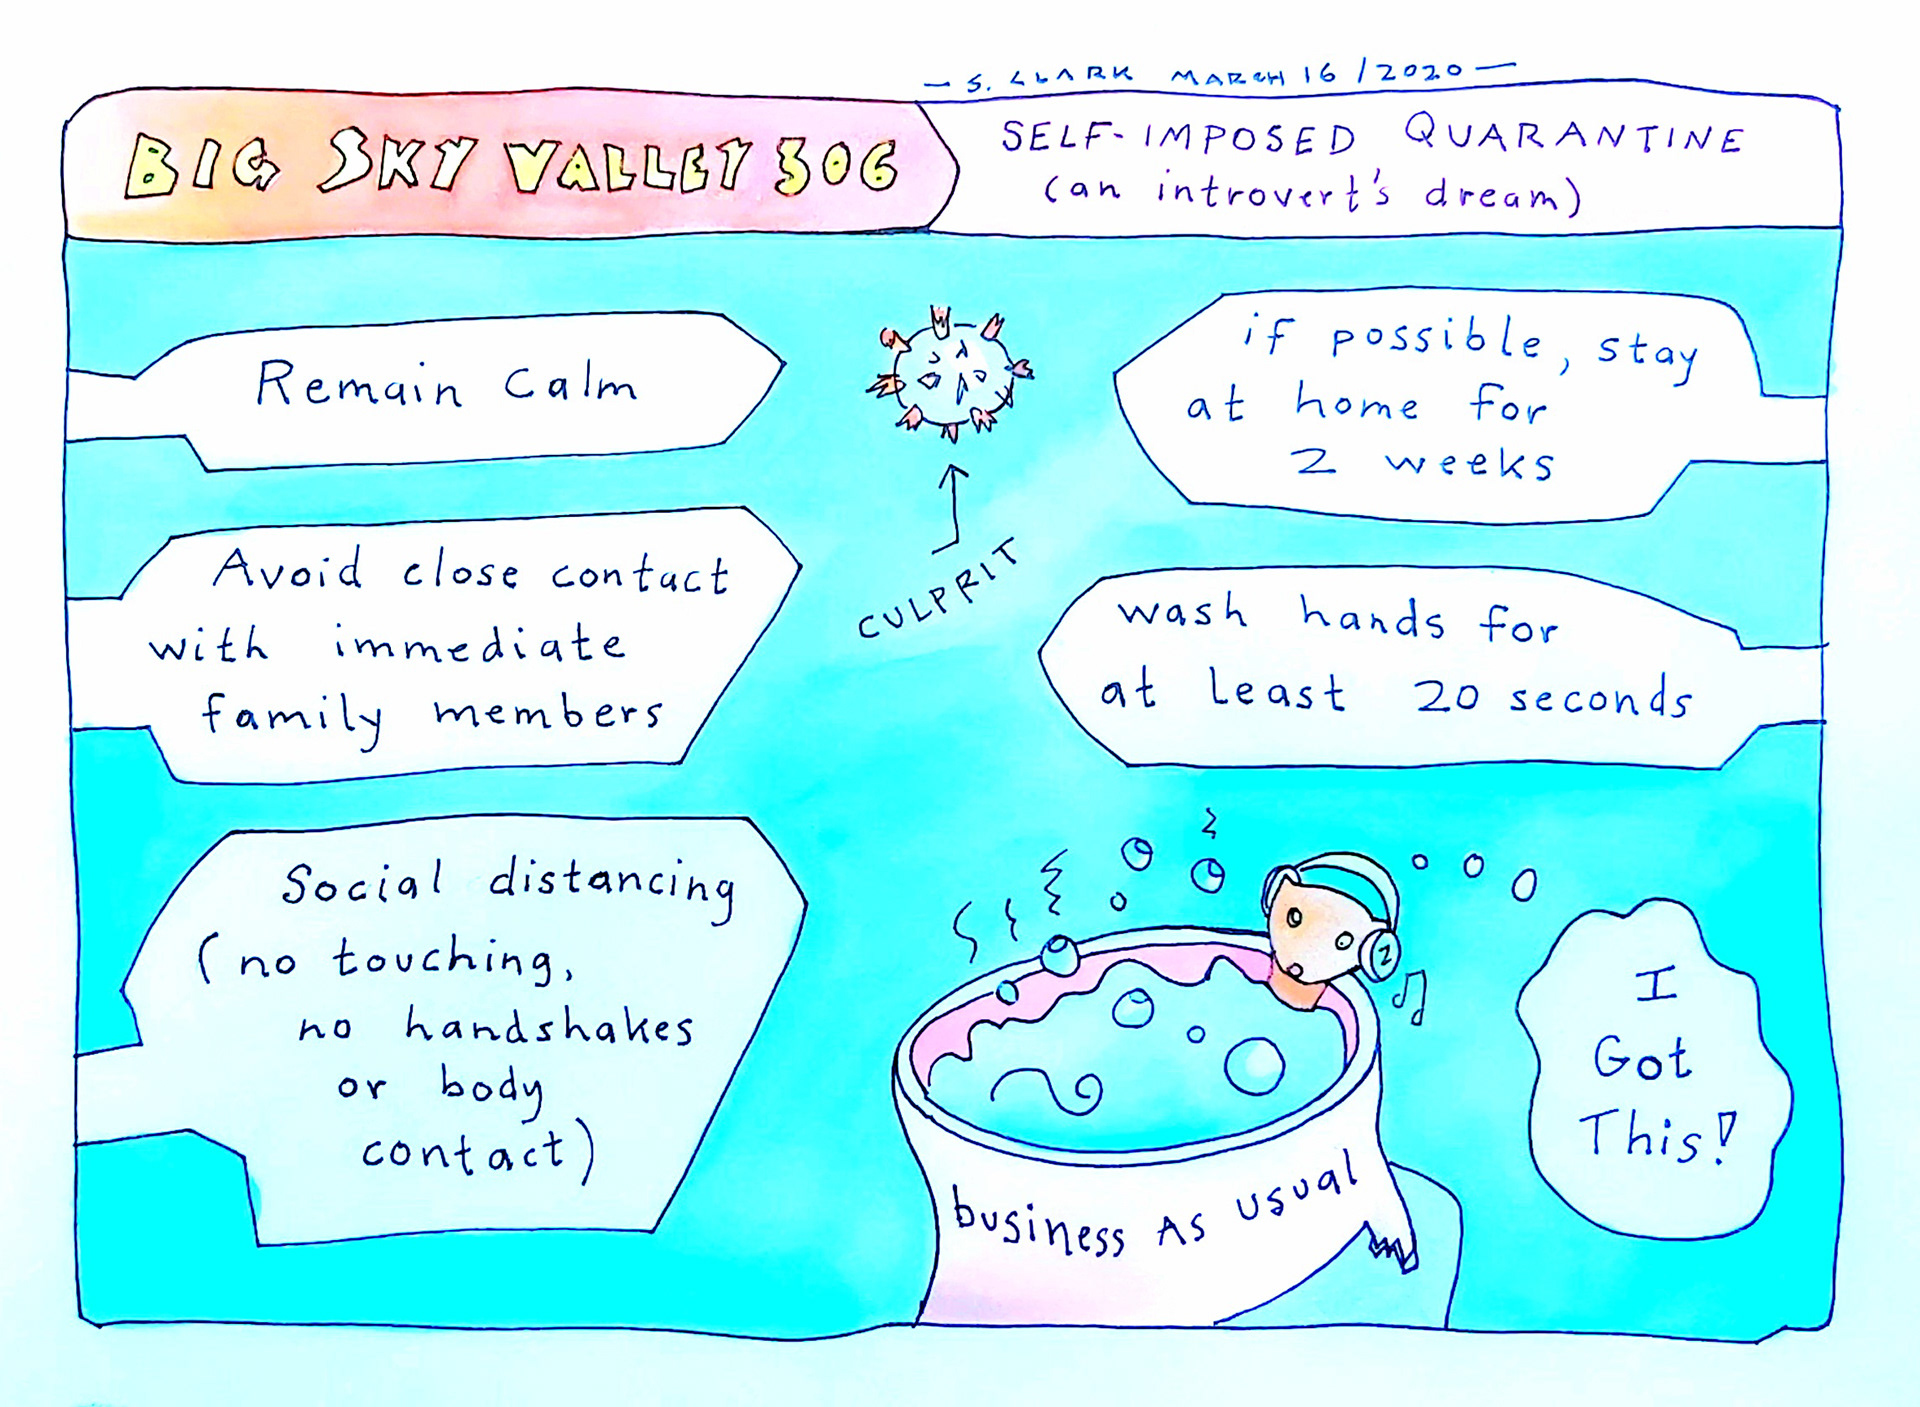 — S. CLARK MARCH 16 / 2020 —
BIG SKY VALLEY 306
SELF-IMPOSED QUARANTINE
(an introvert's dream)
Remain Calm
if possible, stay
at home for
2 weeks
CULPRIT
Avoid close contact
with immediate
family members
wash hands for
at least 20 seconds
Social distancing
(no touching,
no handshakes
or body
contact)
2
I
Got
This!
business As usual